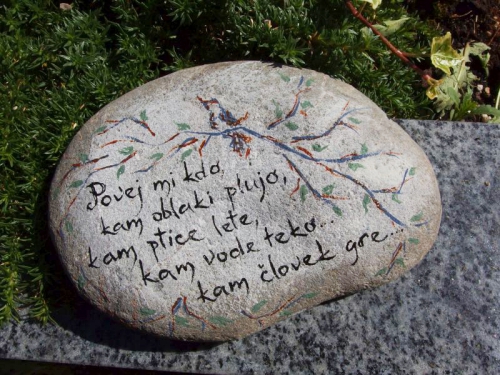 Povej mi kdo,
kam oblaki plujo,
kam ptice lete,
kam vode teko...
kam človek gre...